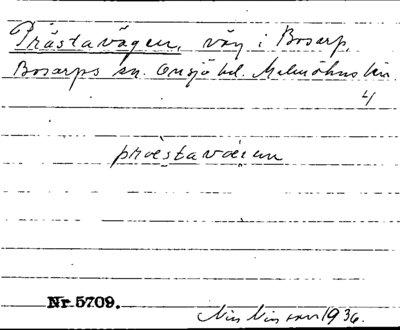 Prästavägen, väg i Bosarp
Bosarps sn. Onsjö hd. Malmöhus län
4
präestavæien
Nr 5709.
Nils Nilsson 1936.